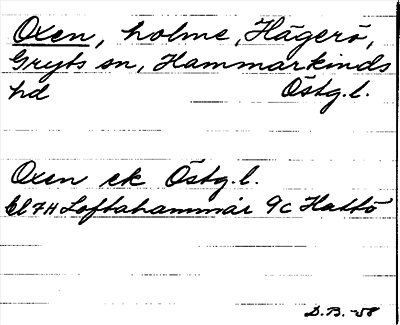 Oxen, holme, Hägerö,
Gryts sn, Hammarkinds
hd Östg.l.
Oxen ek Östg.l.
bl 7H Loftahammar 9c Hattö
D.B. -58